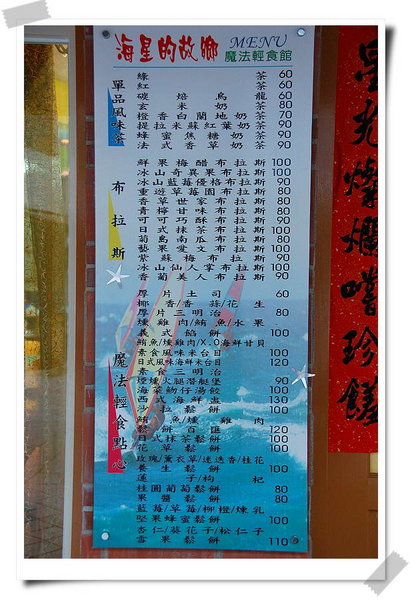 海星的故鄉 MENU
魔法輕食館
單品風味茶
綠茶 60
紅茶 60
碳焙烏龍 60
玄米奶茶 80
橙香白蘭地奶茶 70
提拉米蘇紅葉奶茶 90
蜂蜜焦糖奶茶 90
法式香草奶茶 90
布拉斯
鮮果梅醋布拉斯 100
冰山奇異果布拉斯 100
冰山藍莓優格布拉斯 90
重遊草莓園布拉斯 80
香草世家布拉斯 80
青檸甘味布拉斯 80
可可巧酥布拉斯 90
日式抹茶布拉斯 100
葡島南瓜布拉斯 80
藝果愛文布拉斯 100
紫蘇梅布拉斯 90
冰山仙人掌布拉斯 100
香葡美人布拉斯 80
魔法輕食點心
厚片土司 60
椰香/香蒜/花生
厚片三明治 80
燻雞肉/鮪魚/水果
義式餡餅 100
鮪魚/燻雞肉/X.O海鮮甘貝
素食風味米台目 100
日式風味海鮮米台目 120
素食三明治
煙燻火腿潛艇堡 90
海菜魩仔湯餃 100
西式海鮮盅 130
沙拉鬆餅 100
鮪魚/燻雞肉
鬆餅百匯 120
日式抹茶鬆餅 100
花草鬆餅 100
玫瑰/薰衣草/迷迭香/桂花
養生鬆餅 100
蓮子/枸杞
桂圓葡萄鬆餅 80
果醬鬆餅 80
藍莓/草莓/柳橙/煉乳
堅果蜂蜜鬆餅 100
杏仁/葵花子/松仁子
雪果鬆餅 110
星光燦爛嚐珍饈